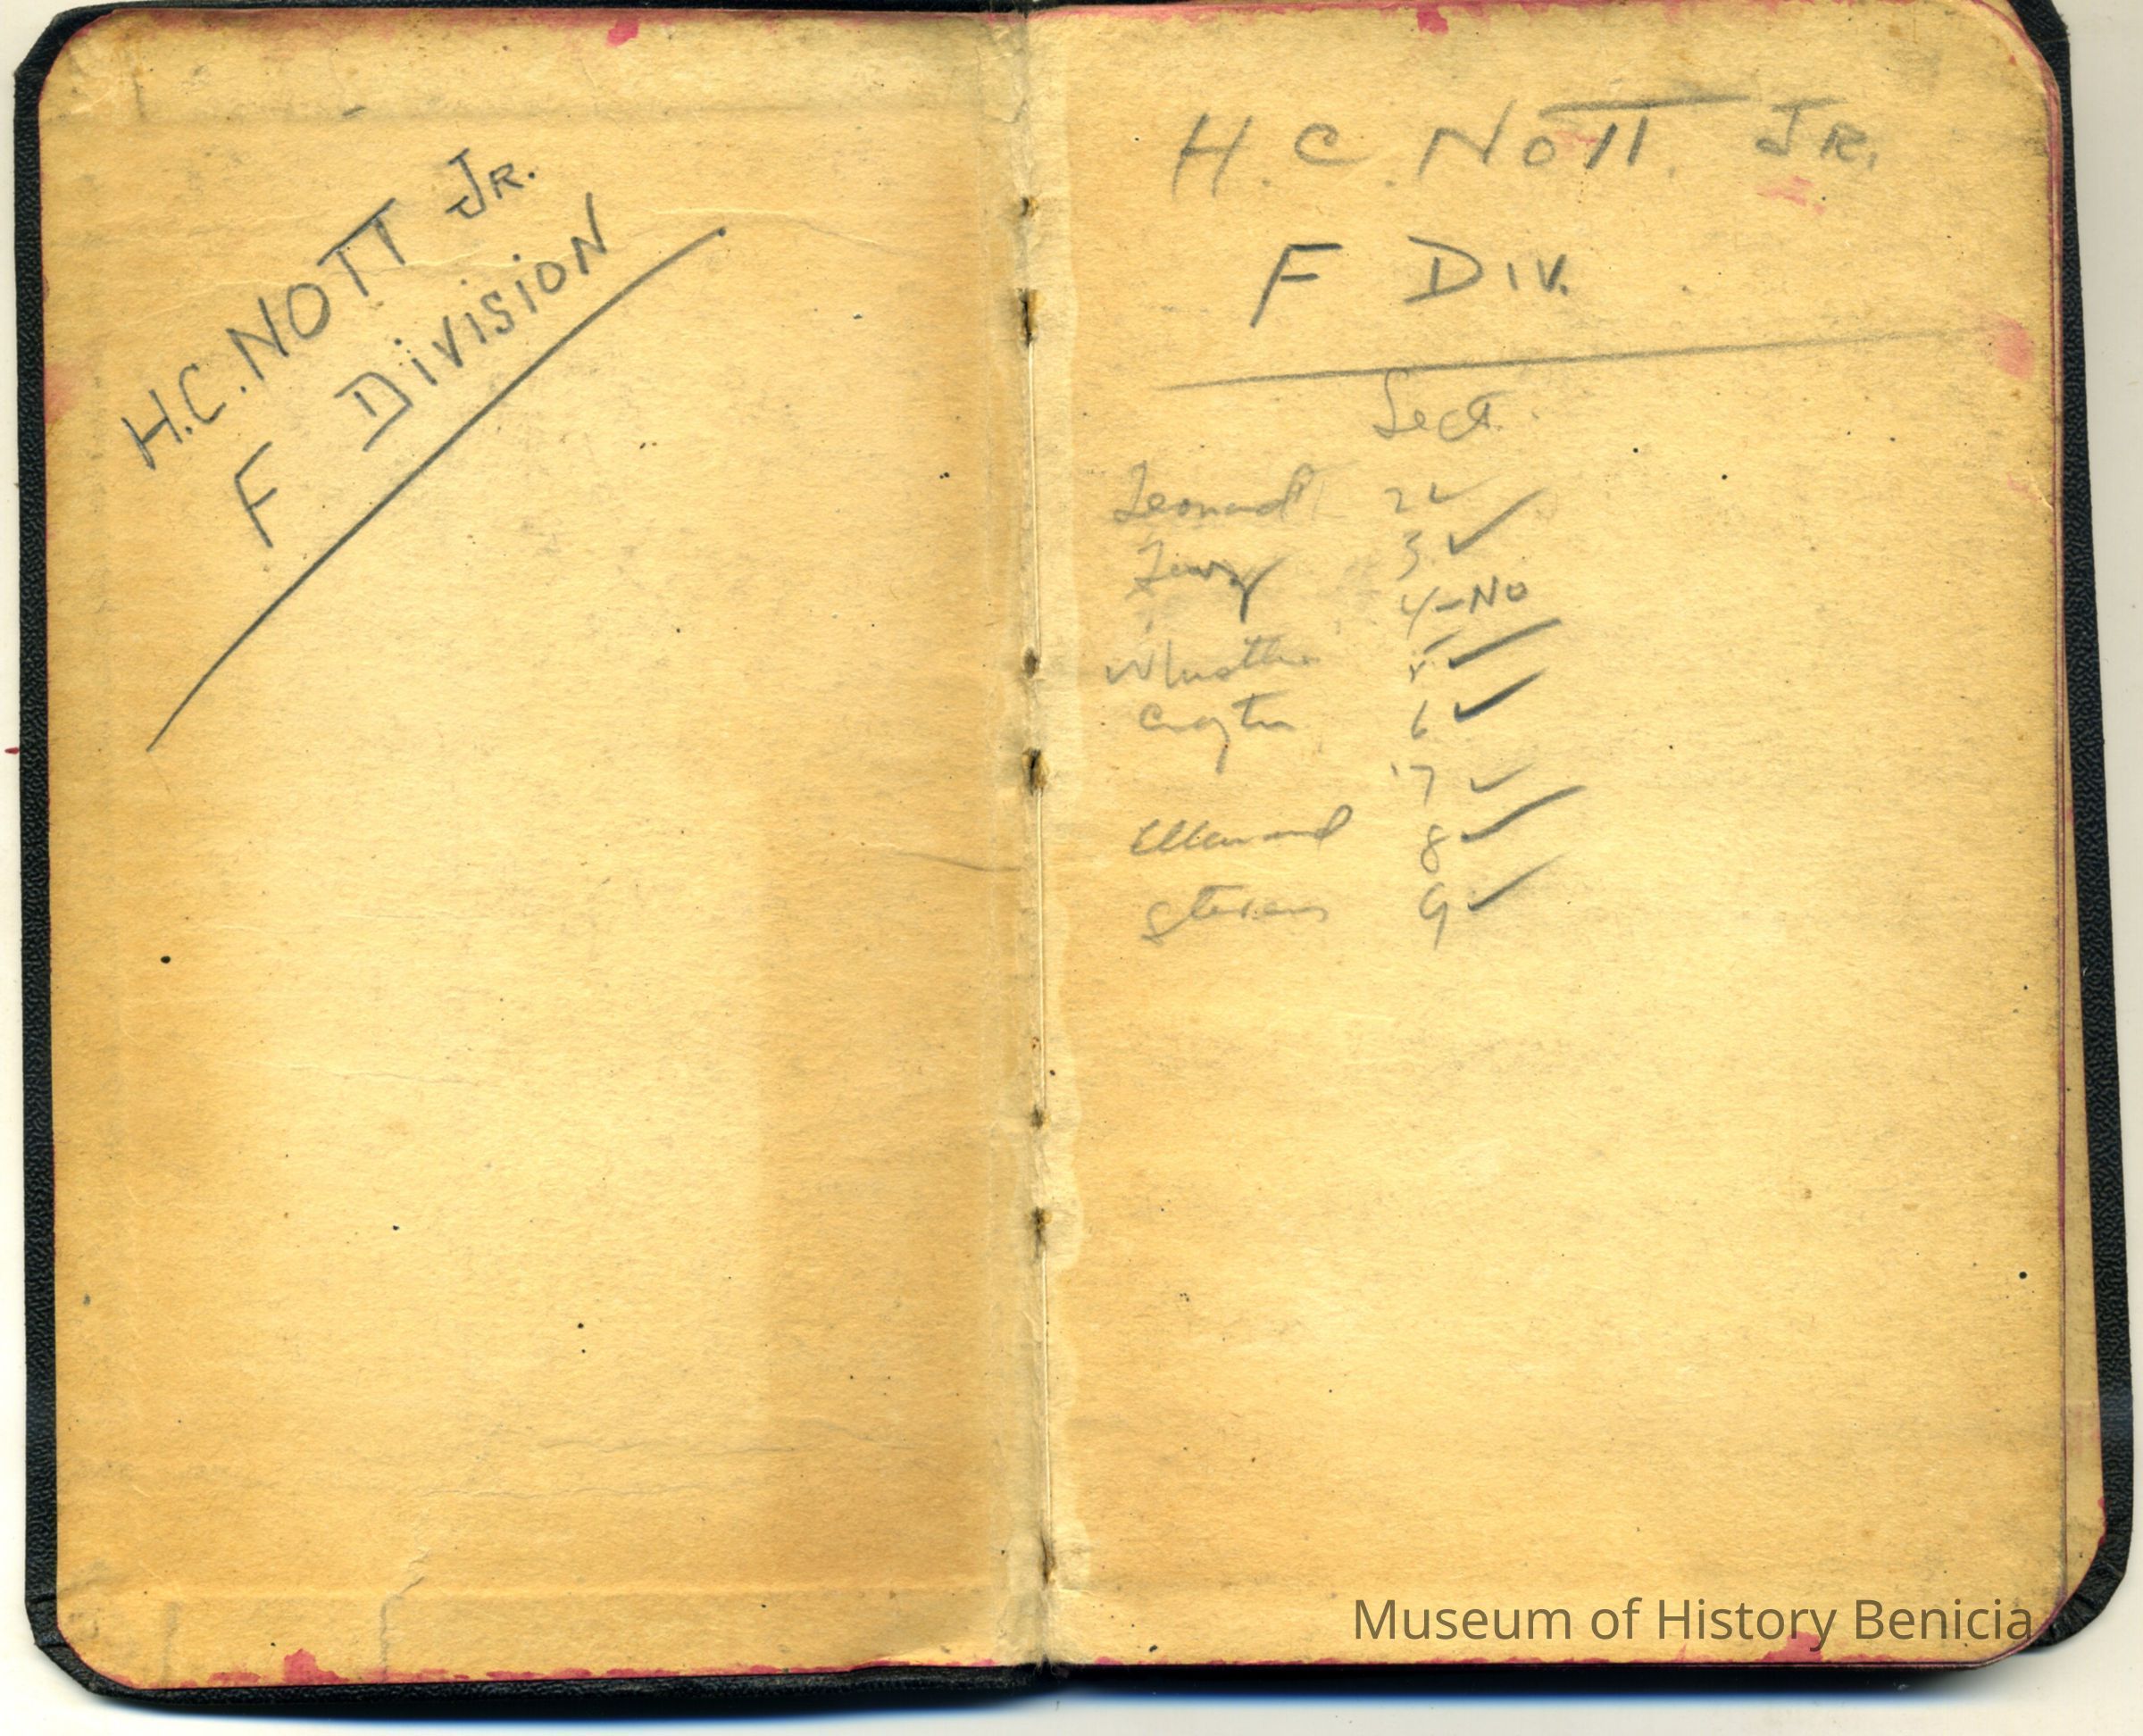 H.C. NOTT JR.
F DIVISION
H. C. NOTT. JR.
F DIV.
Sect.
Leonard 2 ✓
3 ✓
4 - No
5 ✓
6 ✓
7 ✓
8 ✓
Stevens 9 ✓
Museum of History Benicia